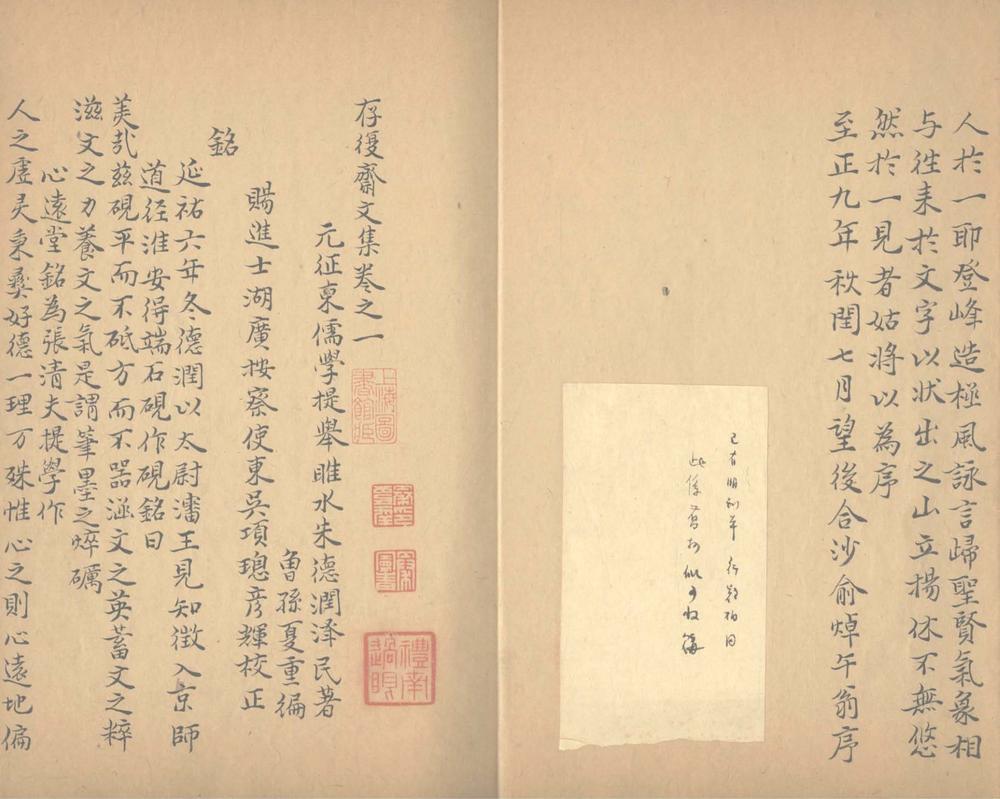 人於一耶登峰造極風詠言歸聖賢氣象相
与徃来於文字以状出之山立揚休不無悠
然於一見者姑將以為序
至正九年秋閏七月望後合沙俞焯午翁序
已有明刻本 行欵相同
此係舊抄似可收
存復齋文集卷之一
元征東儒學提舉睢水朱德潤泽民著
曾孫夏重編
賜進士湖廣按察使東吳項璁彦輝校正
銘
延祐六年冬德潤以太尉瀋王見知徵入京師
道径淮安得端石硯作硯銘曰
美㢤兹硯平而不砥方而不嚚涵文之英蓄文之粹
滋文之力養文之氣是謂筆墨之焠礪
心遠堂銘為張清夫提學作
人之虛灵秉彝好德一理万殊惟心之則心遠地偏
上海圖
書館藏
禮南
過眼